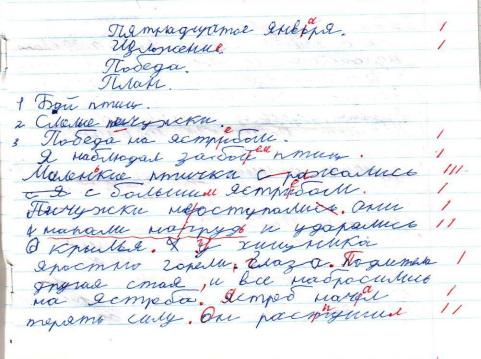 Пятнадцатое января.
Изложение
Победа.
План.
1 Бой птиц.
2. Смелые пичужки.
3 Победа на ястребом.
Я наблюдал забой птиц.
Маленкие птички с ражались
с большим ястребом.
Пичужки неоступались. Они
напали на грудь и ударялись
О крылья. У хищника
яростно горели глаза. Подлетела
другая стая, и все набросились
на ястреба. Ястреб начал
терять силу. Он